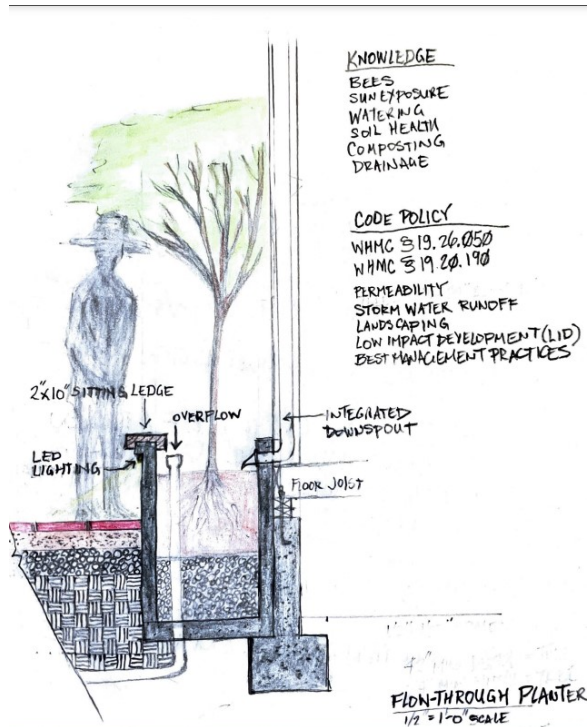 KNOWLEDGE
BEES
SUN EXPOSURE
WATERING
SOIL HEALTH
COMPOSTING
DRAINAGE
CODE POLICY
WHMC § 19.26.050
WHMC § 19.20.190
PERMEABILITY
STORM WATER RUNOFF
LANDSCAPING
LOW IMPACT DEVELOPMENT (LID)
BEST MANAGEMENT PRACTICES
2"X10" SITTING LEDGE
OVERFLOW
INTEGRATED
DOWNSPOUT
LED
LIGHTING
FLOOR JOIST
FLOW-THROUGH PLANTER
1/2" = 1'-0" SCALE